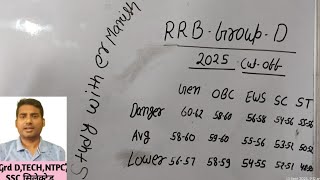 RRB-Group-D
2025 Cut-Off
Study with er Manish
Gen OBC EWS SC ST
Danger 60-62 58-60 56-58 54-56
Avg 58-60 59-60 55-56 53-51
Lower 56-57 58-59 54-55
Grd D,TECH,NTPC,
SSC सिलेक्टेड